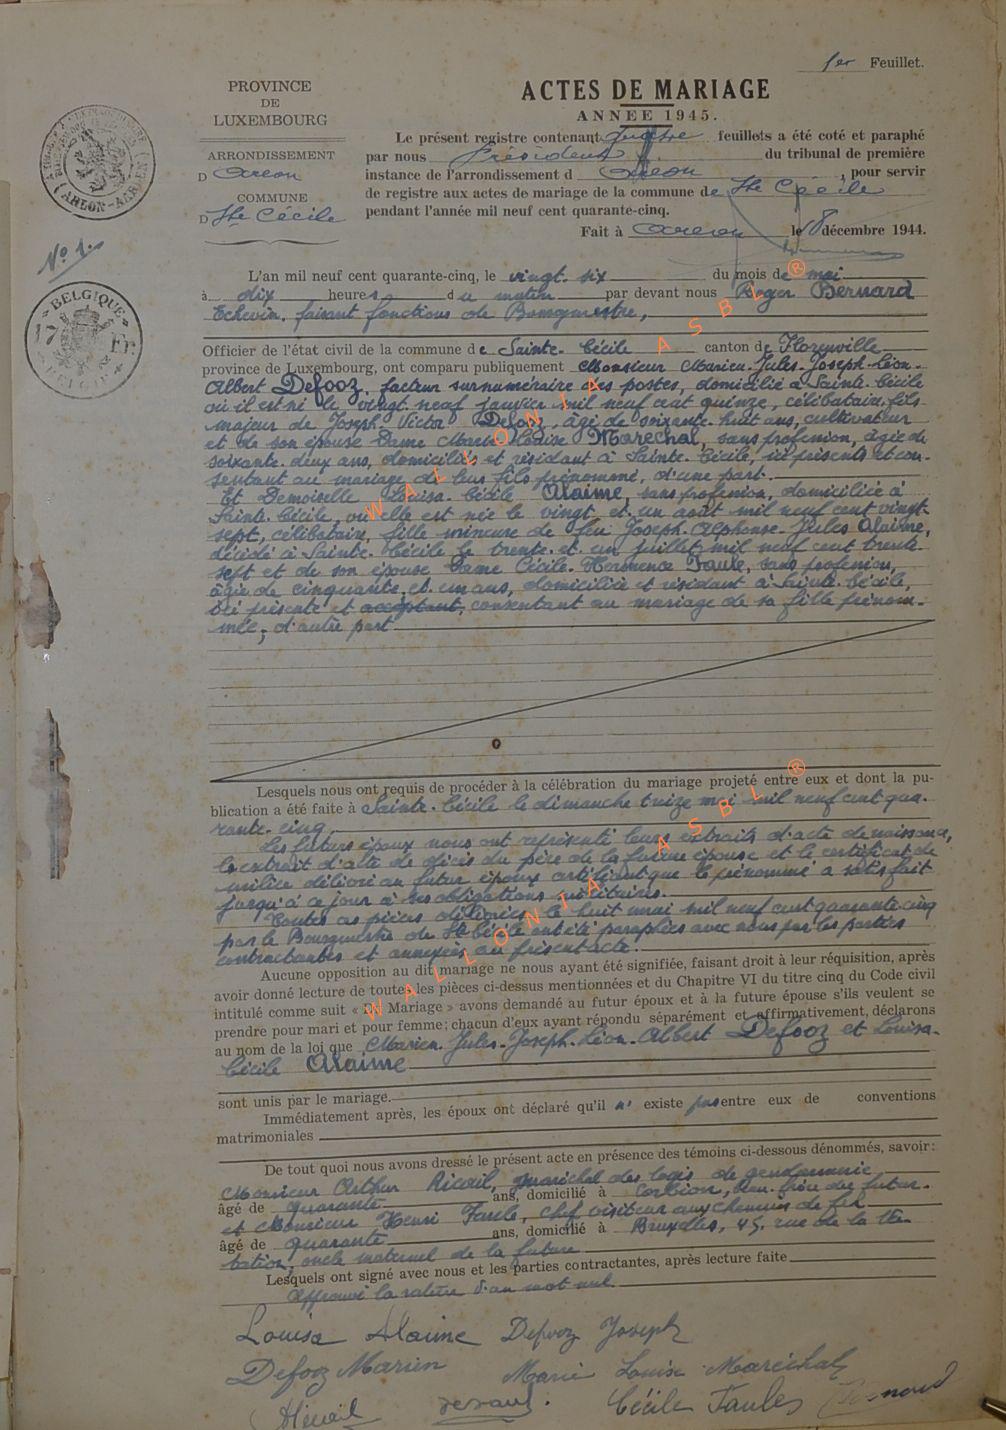 1er Feuillet.
PROVINCE
DE
LUXEMBOURG
ARRONDISSEMENT
D Arlon
COMMUNE
D Ste Cécile
ACTES DE MARIAGE
ANNEE 1945.
Le présent registre contenant quatre feuillets a été coté et paraphé
par nous Président du tribunal de première
instance de l'arrondissement d Arlon, pour servir
de registre aux actes de mariage de la commune de Ste Cécile
pendant l'année mil neuf cent quarante-cinq.
Fait à Arlon le 8 décembre 1944.
(ARLON-AARLEN)
N° 1.
BELGIQUE
17 Fr.
BELGIE
L'an mil neuf cent quarante-cinq, le vingt-six du mois de mai
à dix heures du matin par devant nous Roger Bernard
Echevin, faisant fonctions de Bourgmestre,
Officier de l'état civil de la commune de Sainte-Cécile canton de Florenville
province de Luxembourg, ont comparu publiquement Monsieur Marien-Jules-Joseph-Léon-
Albert Defooz, facteur surnuméraire des postes, domicilié à Sainte-Cécile
où il est né le vingt-neuf janvier mil neuf cent quinze, célibataire, fils
majeur de Joseph Victor Defooz, âgé de soixante-huit ans, cultivateur
et de son épouse Dame Marie Louise Maréchal, sans profession, âgée de
soixante-deux ans, domiciliés et résidant à Sainte-Cécile, ici présents et con-
sentant au mariage de leur fils prénommé, d'une part.
Et Demoiselle Louisa-Cécile Alaime, sans profession, domiciliée à
Sainte-Cécile, où elle est née le vingt et un août mil neuf cent vingt-
sept, célibataire, fille mineure de feu Joseph-Alphonse-Jules Alaime,
décédé à Sainte-Cécile le trente-et-un juillet mil neuf cent trente-
sept et de son épouse Dame Cécile-Hermence Faule, sans profession,
âgée de cinquante et un ans, domiciliée et résidant à Sainte-Cécile,
ici présente et acceptant, consentant au mariage de sa fille prénom-
mée, d'autre part
Lesquels nous ont requis de procéder à la célébration du mariage projeté entre eux et dont la pu-
blication a été faite à Sainte-Cécile le dimanche treize mai mil neuf cent qua-
rante-cinq
Les futurs époux nous ont représenté leurs extraits d'acte de naissance,
le extrait d'acte de décès du père de la future épouse et le certificat de
milice délivré au futur époux certifiant que le prénommé a satisfait
jusqu'à ce jour à ses obligations militaires.
Toutes ces pièces délivrées le huit mai mil neuf cent quarante cinq
par le Bourgmestre de Ste Cécile ont été paraphées avec nous par les parties
contractantes et annexées au présent acte.
Aucune opposition au dit mariage ne nous ayant été signifiée, faisant droit à leur réquisition, après
avoir donné lecture de toutes les pièces ci-dessus mentionnées et du Chapitre VI du titre cinq du Code civil
intitulé comme suit « Du Mariage » avons demandé au futur époux et à la future épouse s'ils veulent se
prendre pour mari et pour femme; chacun d'eux ayant répondu séparément et affirmativement, déclarons
au nom de la loi que Marien-Jules-Joseph-Léon-Albert Defooz et Louisa-
Cécile Alaime
sont unis par le mariage.
Immédiatement après, les époux ont déclaré qu'il n' existe pas entre eux de conventions
matrimoniales
De tout quoi nous avons dressé le présent acte en présence des témoins ci-dessous dénommés, savoir:
Monsieur Arthur maréchal des logis de gendarmerie,
âgé de quarante ans, domicilié à Corbion, beau-frère du futur-
et Monsieur Henri Faule, chef visiteur aux chemins de fer
âgé de quarante ans, domicilié à Bruxelles, 45, rue de la
oncle maternel de la future
Lesquels ont signé avec nous et les parties contractantes, après lecture faite
Approuvé la rature d'un mot nul
Louisa Alaime Defooz Joseph
Defooz Marien Marie Louise Maréchal
Cécile Faules Bernard
WALLONIA ASBL®
WALLONIA ASBL®